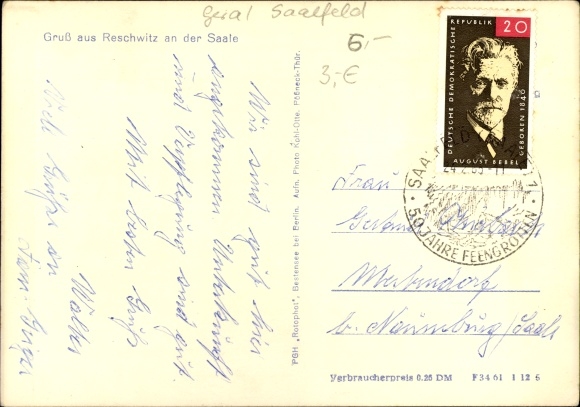 Saalfeld
6,-
3,-€
Gruß aus Reschwitz an der Saale
Wir sind gut hier
angekommen Unterkunft
und Verpflegung sind gut.
Mit besten Gruß
Walter
Viele Grüße an
Fam.
PGH „Rotophot", Bestensee bei Berlin. Aufn. Photo Kühl-Otte, Pößneck-Thür.
DEUTSCHE DEMOKRATISCHE REPUBLIK
20
GEBOREN 1840
AUGUST BEBEL
SAALFELD (SAALE) 1
50 JAHRE FEENGROTTEN
Frau
b. Naumburg/Saale
Verbraucherpreis 0.25 DM F 34 61 1 12 6